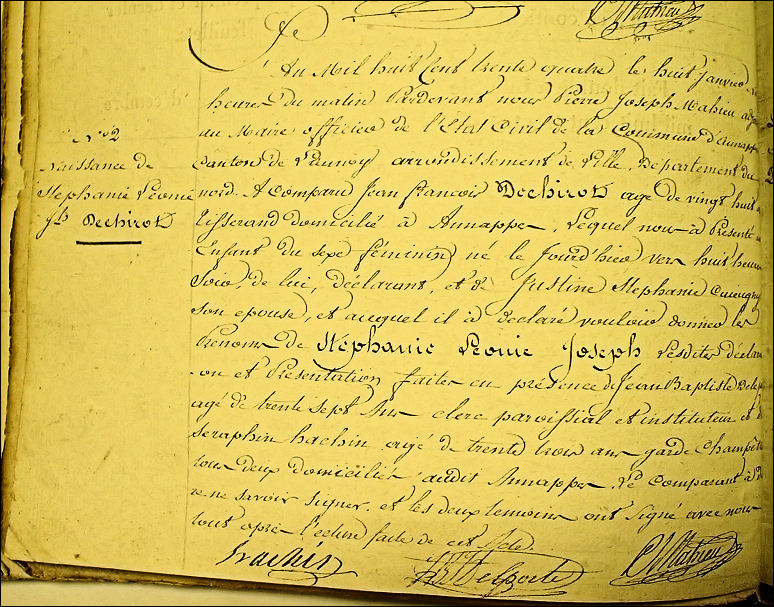 L'An Mil huit Cent trente quatre le huit Janvier
heures du matin Pardevant nous Pierre Joseph Mahieu
au Maire officier de l'Etat Civil de la Commune d'annappes
Canton de Lannoy arrondissement de Lille, Departement du
nord. A Comparu Jean francois Dechirot agé de vingt huit
tisserand domicilié à Annappes, lequel nous à Présenté
Enfant du sexe féminin né le Jourd'hier vers huit heures
Soir, de lui, déclarant, et de Justine Stephanie
son epouse, et auquel il à declaré vouloir donner les
Prenoms de Stéphanie Leonie Joseph Lesdites déclara
on et Présentation faites en présence de Jean Baptiste
agé de trente sept Ans clerc paroissial et instituteur et
seraphin hachin agé de trente trois ans garde Champêt
tous deux domiciliés audit Annappes. Led Comparant à
re ne savoir signer. et les deux temoins ont signé avec nous
tout après lecture faite de cet Acte.
N.° 2
naissance de
Stephanie Leonie
Jh Dechirot
hachin
Delporte
Mahieu